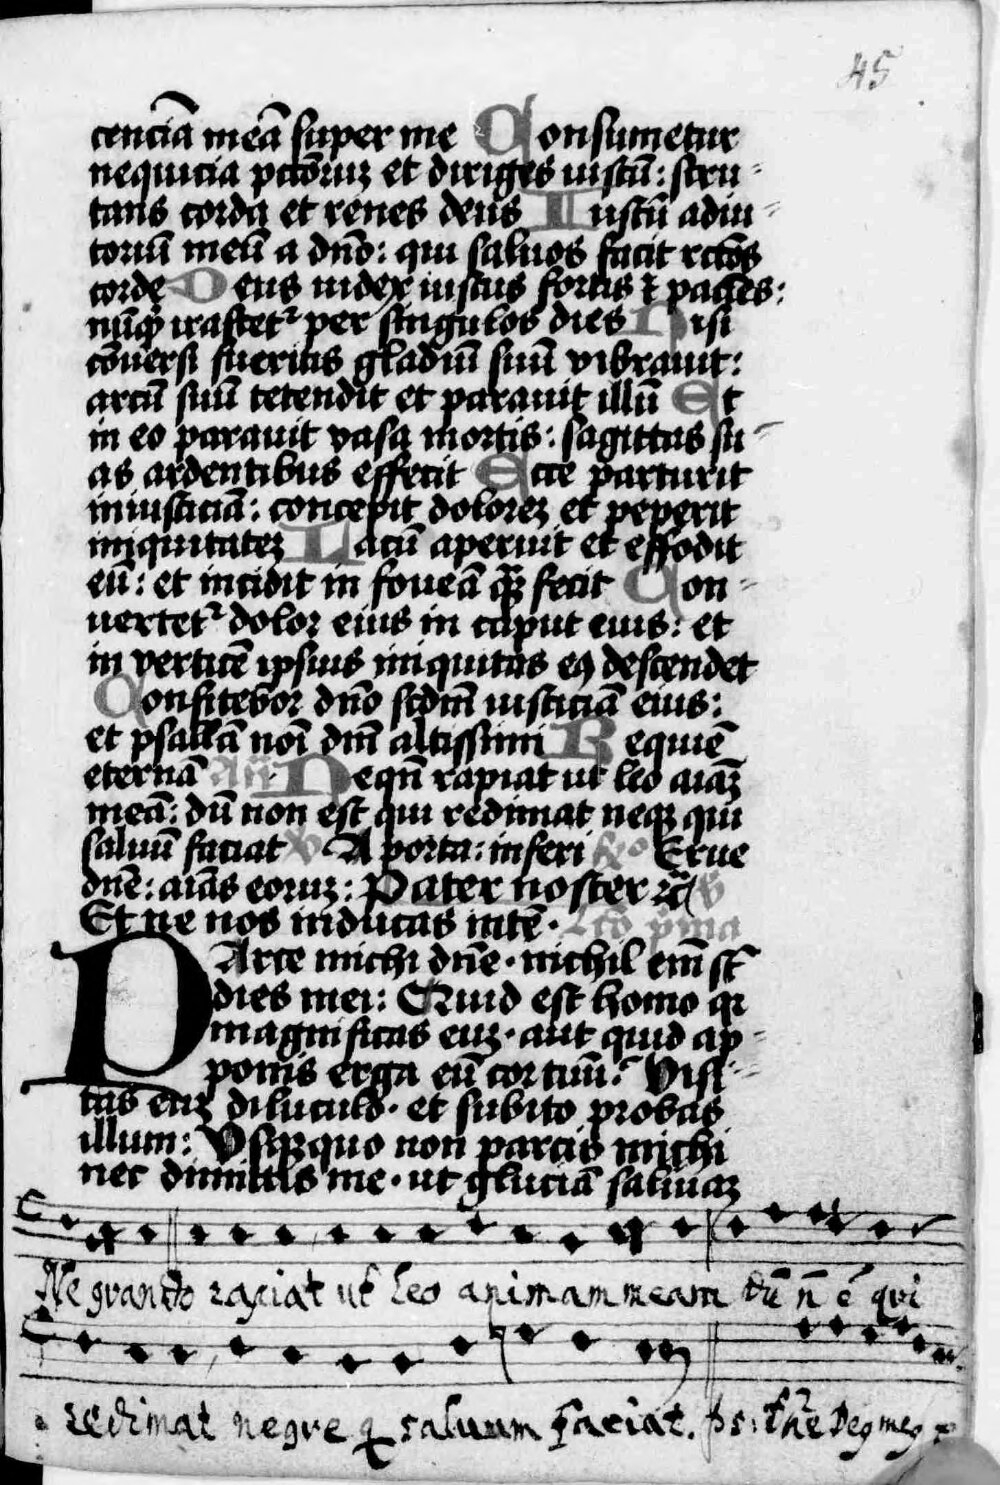 45
cenciā meā super me Consumetur
nequicia pctōruꝫ et diriges iustū: scru-
tans corda et renes deus Iustū adiu-
toriū meū a dnō: qui saluos facit rctōs
corde Deus iudex iustus fortis ⁊ paciēs:
nūqͥ irascet᷑ per singulos dies Nisi
cōuersi fueritis gladiū suū vibrauit:
arcū suū tetendit et parauit illū Et
in eo parauit vasa mortis: sagittas su-
as ardentibus effecit Ecce parturit
iniusticiā: concepit doloreꝫ et peperit
iniquitateꝫ Lacū aperuit et effodit
eū: et incidit in foueā quā fecit Con-
uertet᷑ dolor eius in caput eius: et
in verticē ipsius iniquitas eꝰ descendet
Confitebor dnō scdm̄ iusticiā eius:
et psallā noī dnī altissimi Requiē
eternā Añ Neqn̄ rapiat ut leo aiaꝫ
meā: dū non est qui redimat neqꝫ qui
saluū faciat ℣ A porta: inferi ℟o Erue
dnē: aiās eoruꝫ: Pater noster ⁊c̄ ℣
Et ne nos inducas intē. Lcō pͥma
PArce michi dnē. nichil em̄ st̄
dies mei: Quid est homo qꝛ
magnificas euꝫ. aut quid ap-
ponis erga eū cor tuū: Visi-
tas euꝫ diluculo. et subito probas
illum: Usqꝫquo non parcis michi
nec dimittis me. ut gluciā saliuaꝫ
Ne quando rapiat ut leo animam meam dū n̄ ē qui
redimat neque q saluum faciat. ps: Dñe Deꝰ meꝰ